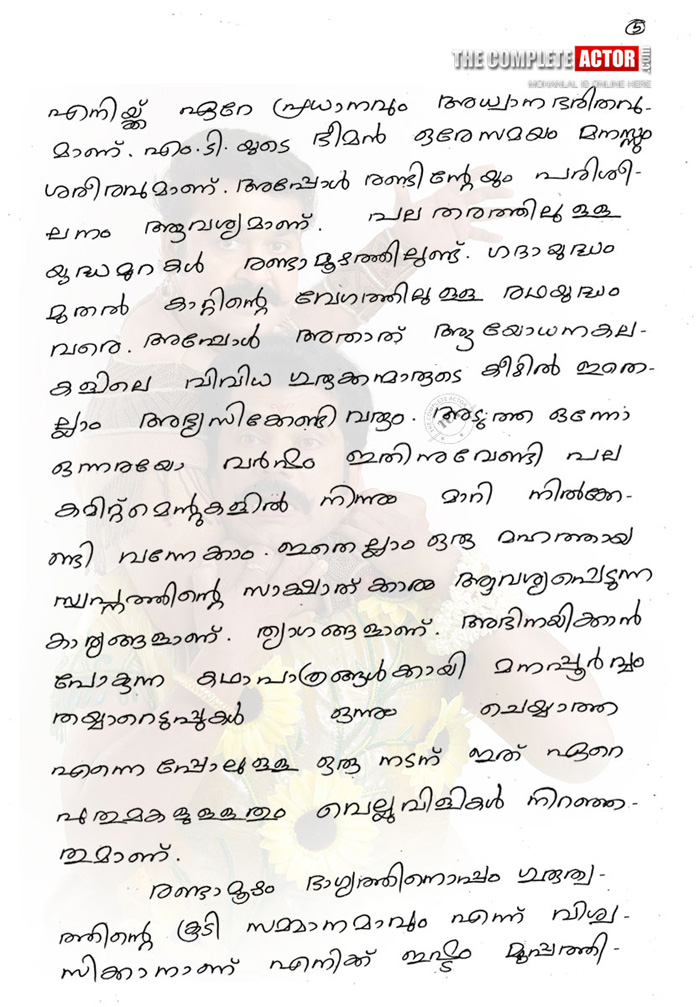 5
THE COMPLETE ACTOR .com
MOHANLAL IS ONLINE HERE
എനിയ്ക്ക് ഏറേ പ്രധാനവും അധ്വാനഭരിതവു-
മാണ്. എം.ടി.യുടെ ഭീമൻ ഒരേസമയം മനസ്സും
ശരീരവുമാണ്. അപ്പോൾ രണ്ടിന്റേയും പരിശീ-
ലനം ആവശ്യമാണ്. പല തരത്തിലുള്ള
യുദ്ധമുറകൾ രണ്ടാമൂഴത്തിലുണ്ട്. ഗദായുദ്ധം
മുതൽ കാറ്റിന്റെ വേഗത്തിലുള്ള രഥയുദ്ധം
വരെ. അപ്പോൾ അതാത് ആയോധനകല-
കളിലെ വിവിധ ഗുരുക്കന്മാരുടെ കീഴിൽ ഇതെ-
ല്ലാം അഭ്യസിക്കേണ്ടി വരും. അടുത്ത ഒന്നോ
ഒന്നരയോ വർഷം ഇതിനുവേണ്ടി പല
കമിറ്റ്മെന്റുകളിൽ നിന്നും മാറി നിൽക്കേ-
ണ്ടി വന്നേക്കാം. ഇതെല്ലാം ഒരു മഹത്തായ
സ്വപ്നത്തിന്റെ സാക്ഷാത്കാരം ആവശ്യപ്പെടുന്ന
കാര്യങ്ങളാണ്. ത്യാഗങ്ങളാണ്. അഭിനയിക്കാൻ
പോകുന്ന കഥാപാത്രങ്ങൾക്കായി മനഃപൂർവ്വം
തയ്യാറെടുപ്പുകൾ ഒന്നും ചെയ്യാത്ത
എന്നെപ്പോലുള്ള ഒരു നടന് ഇത് ഏറെ
പുതുമകളുള്ളതും വെല്ലുവിളികൾ നിറഞ്ഞ-
തുമാണ്.
രണ്ടാമൂഴം ഭാഗ്യത്തിനൊപ്പം ഗുരുത്വ-
ത്തിന്റെ കൂടി സമ്മാനമാവും എന്ന് വിശ്വ-
സിക്കാനാണ് എനിക്ക് ഇഷ്ടം മുപ്പത്തി-